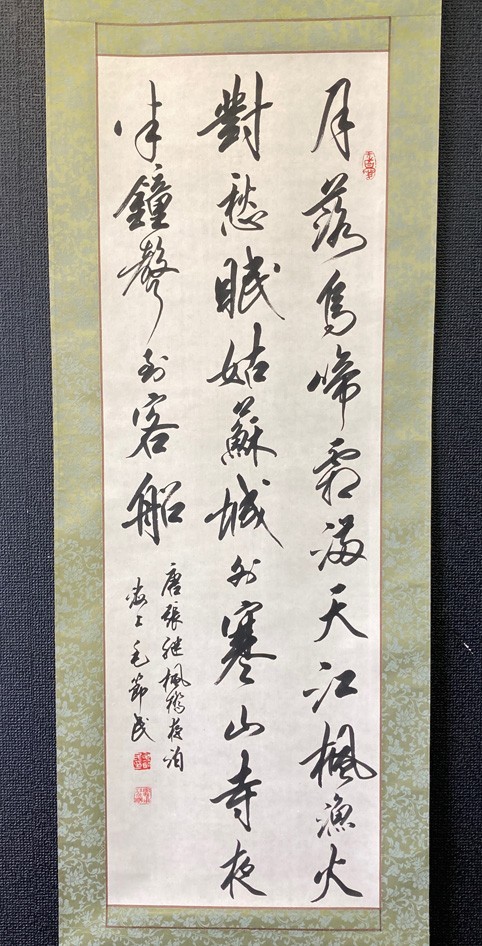 月落烏啼霜滿天江楓漁火
對愁眠姑蘇城外寒山寺夜
半鐘聲到客船
唐張継楓橋夜泊
海上毛節民